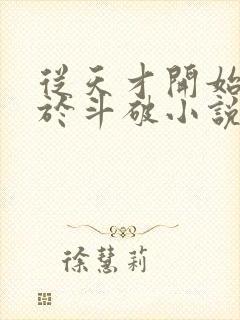 從天才開始
於斗破小說
徐慧莉